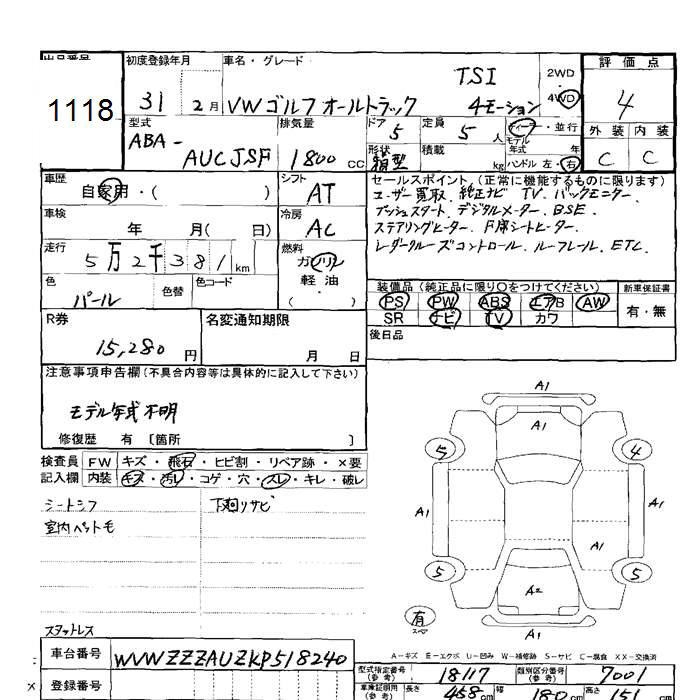 出品番号
1118
初度登録年月
31 2月
車名・グレード
TSI
VWゴルフオールトラック 4モーション
2WD
4WD
評価点
4
外装 内装
C C
型式
ABA-
AUCJSF
排気量
1800 CC
ドア 5
定員 5 人
形状
箱型
積載 kg
ディーラー・並行
モデル年式 年
ハンドル 左・右
車歴
自家用・( )
シフト
AT
車検
年 月( 日)
冷房
AC
走行
5万2千381 km
燃料
ガソリン
軽油
( )
色
パール
色替
色コード
セールスポイント(正常に機能するものに限ります)
ユーザー買取. 純正ナビ. TV. バックモニター.
プッシュスタート. デジタルメーター. BSE.
ステアリングヒーター. F席シートヒーター.
レーダークルーズコントロール. ルーフレール. ETC.
装備品(純正品に限り〇をつけてください)
PS PW ABS エアB AW
SR ナビ TV カワ
新車保証書
有・無
後日品
R券
15,280 円
名変通知期限
月 日
注意事項申告欄(不具合内容等は具体的に記入して下さい)
モデル年式不明
修復歴 有 〔箇所 〕
検査員 FW キズ・飛石・ヒビ割・リペア跡・×要
記入欄 内装 キズ・汚レ・コゲ・穴・スレ・キレ・破レ
シートシワ
下廻リサビ
スタットレス
A1
A1
5
4
A1
A1
A1
5
5
A2
有
スペア
A1
A-キズ E-エクボ U-凹み W-補修跡 S-サビ C-腐食 XX-交換済
車台番号
WVWZZZAUZKP518240
登録番号
型式指定番号
(参考)
18117
類別区分番号
(参考)
7001
車庫証明用
(参考)
長さ
468 cm
幅
180 cm
高さ
151 cm